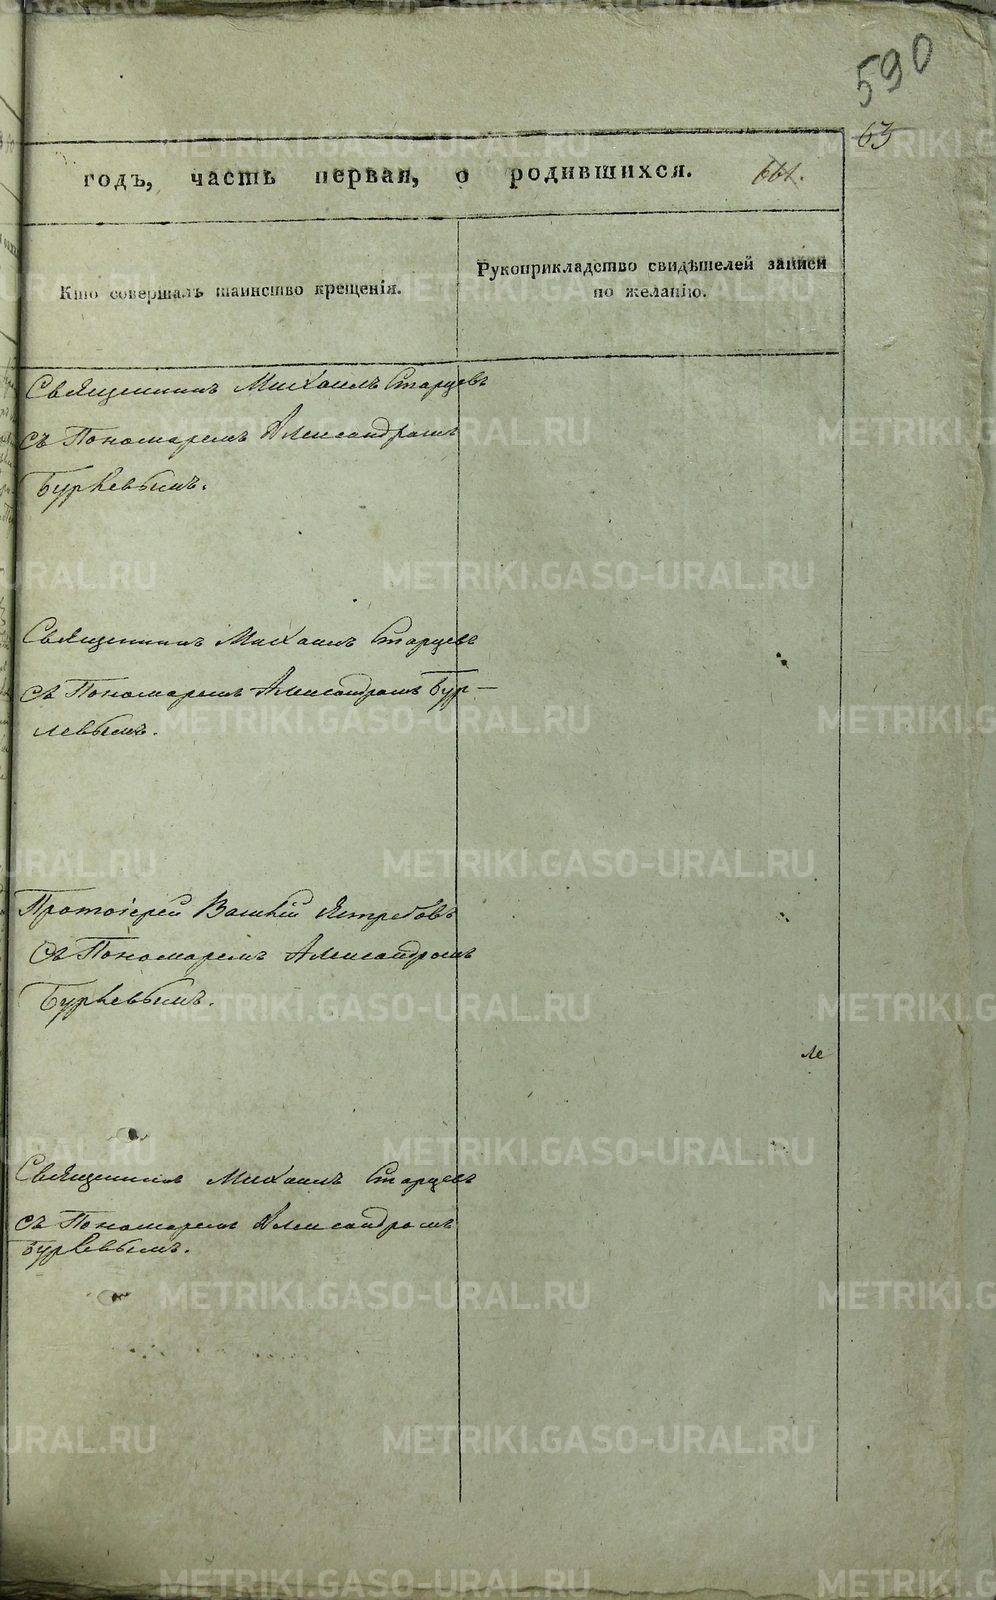 590
63
годъ, часть первая, о родившихся. 661.
Кто совершалъ таинство крещенія.
Рукоприкладство свидѣтелей записи
по желанію.
Священникъ Михаилъ Старцевъ
съ Пономаремъ Александромъ
Бурлевымъ.
Священникъ Михаилъ Старцевъ
съ Пономаремъ Александромъ Бур-
левымъ.
Протоіерей Василій Ястребовъ
Съ Пономаремъ Александромъ
Бурлевымъ.
ле
Священникъ Михаилъ Старцевъ
съ Пономаремъ Александромъ
Бурлевымъ.
METRIKI.GASO-URAL.RU